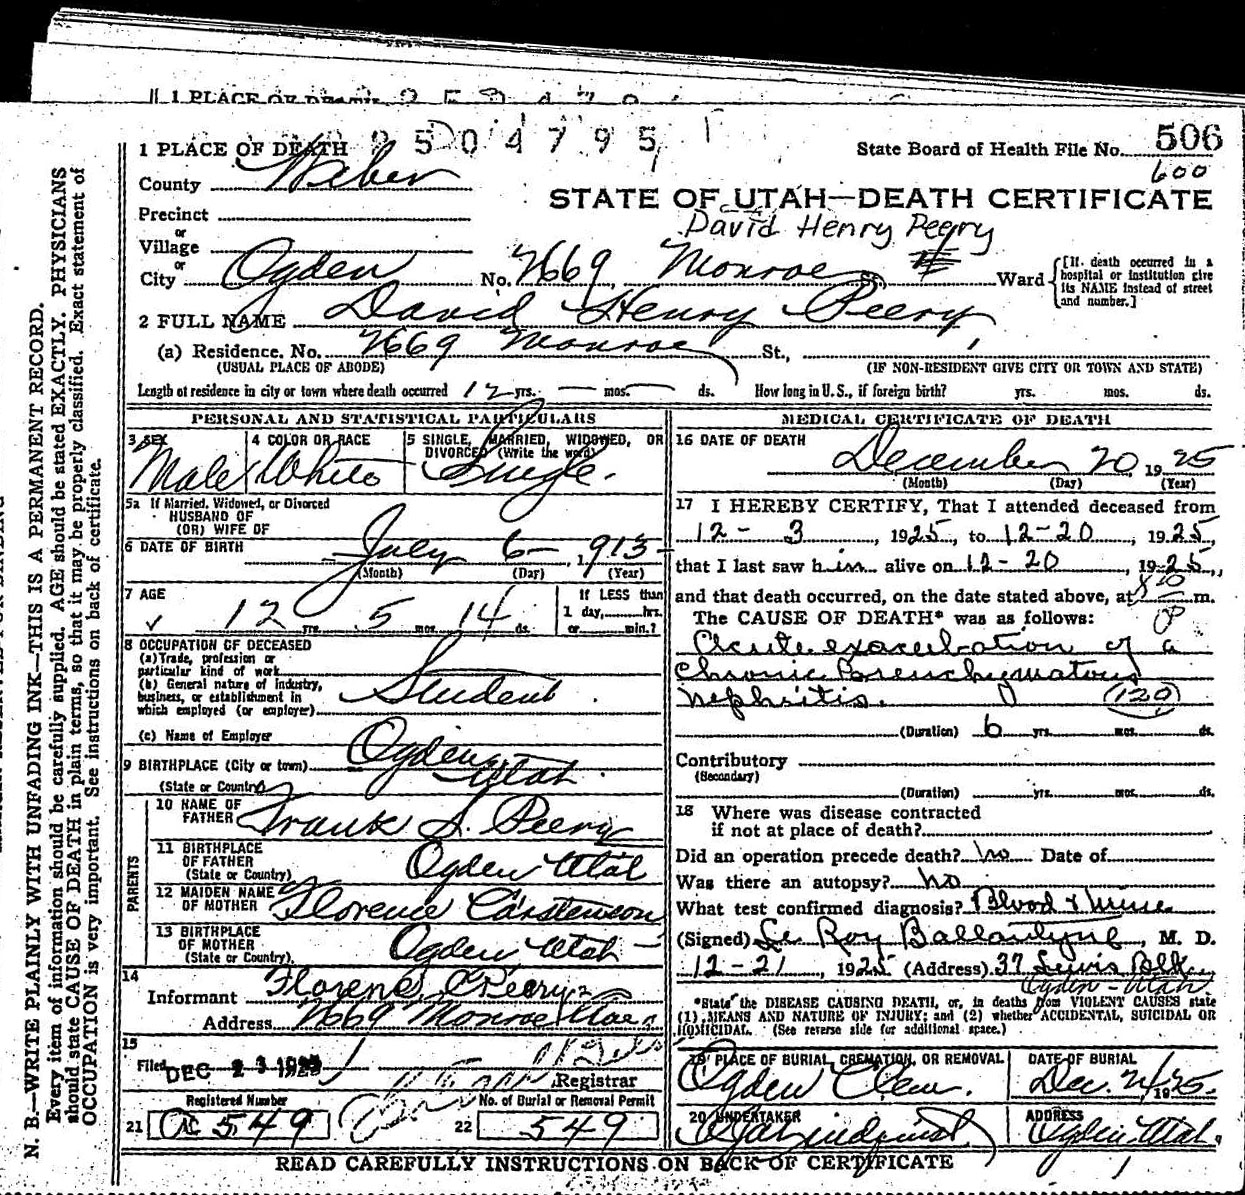 1 PLACE OF DEATH
2504795
State Board of Health File No. 506
600
County Weber
STATE OF UTAH—DEATH CERTIFICATE
Precinct
or
David Henry Peery
Village
or
City Ogden No. 2669 Monroe St. Ward
[If death occurred in a hospital or institution give its NAME instead of street and number.]
2 FULL NAME David Henry Peery
(a) Residence. No. 2669 Monroe St.,
(USUAL PLACE OF ABODE) (IF NON-RESIDENT GIVE CITY OR TOWN AND STATE)
Length of residence in city or town where death occurred 12 yrs. — mos. — ds. How long in U.S., if foreign birth? yrs. mos. ds.
PERSONAL AND STATISTICAL PARTICULARS
3 SEX Male
4 COLOR OR RACE White
5 SINGLE, MARRIED, WIDOWED, OR DIVORCED (Write the word) Single.
5a If Married, Widowed, or Divorced
HUSBAND OF
(OR) WIFE OF
6 DATE OF BIRTH July 6 — , 1913 —
(Month) (Day) (Year)
7 AGE
✓ 12 yrs. 5 mos. 14 ds.
If LESS than
1 day, hrs.
or min.?
8 OCCUPATION OF DECEASED
(a) Trade, profession or
particular kind of work
(b) General nature of industry,
business, or establishment in
which employed (or employer) Student.
(c) Name of Employer
9 BIRTHPLACE (City or town) Ogden
(State or Country) Utah.
PARENTS
10 NAME OF FATHER Frank S. Peery
11 BIRTHPLACE OF FATHER (State or Country) Ogden Utah
12 MAIDEN NAME OF MOTHER Florence Carstenson
13 BIRTHPLACE OF MOTHER (State or Country). Ogden Utah —
14 Informant Florence Peery
Address 2669 Monroe Ave.
15
Filed DEC 23 192
Registrar
Registered Number
No. of Burial or Removal Permit
21 549
22 549
MEDICAL CERTIFICATE OF DEATH
16 DATE OF DEATH
December 20 1925
(Month) (Day) (Year)
17 I HEREBY CERTIFY, That I attended deceased from
12 - 3, 1925, to 12-20, 1925,
that I last saw him alive on 12-20, 1925,
and that death occurred, on the date stated above, at m.
The CAUSE OF DEATH* was as follows:
Acute exacerbation of a
Chronic Parenchymatous
nephritis. (129)
(Duration) 6 yrs. mos. ds.
Contributory
(Secondary)
(Duration) yrs. mos. ds.
18 Where was disease contracted
if not at place of death?
Did an operation precede death? No Date of
Was there an autopsy? No
What test confirmed diagnosis? Blood & Urine
(Signed) Le Roy Ballantyne, M. D.
12-21, 1925 (Address) 37 Lewis Blk
Ogden - Utah.
*State the DISEASE CAUSING DEATH, or, in deaths from VIOLENT CAUSES state
(1) MEANS AND NATURE OF INJURY; and (2) whether ACCIDENTAL, SUICIDAL OR
HOMICIDAL. (See reverse side for additional space.)
19 PLACE OF BURIAL, CREMATION, OR REMOVAL
Ogden Cem.
DATE OF BURIAL
Dec. 1925.
20 UNDERTAKER
ADDRESS
Ogden Utah.
READ CAREFULLY INSTRUCTIONS ON BACK OF CERTIFICATE
N. B.—WRITE PLAINLY WITH UNFADING INK—THIS IS A PERMANENT RECORD.
Every item of information should be carefully supplied. AGE should be stated EXACTLY. PHYSICIANS
should state CAUSE OF DEATH in plain terms, so that it may be properly classified. Exact statement of
OCCUPATION is very important. See instructions on back of certificate.